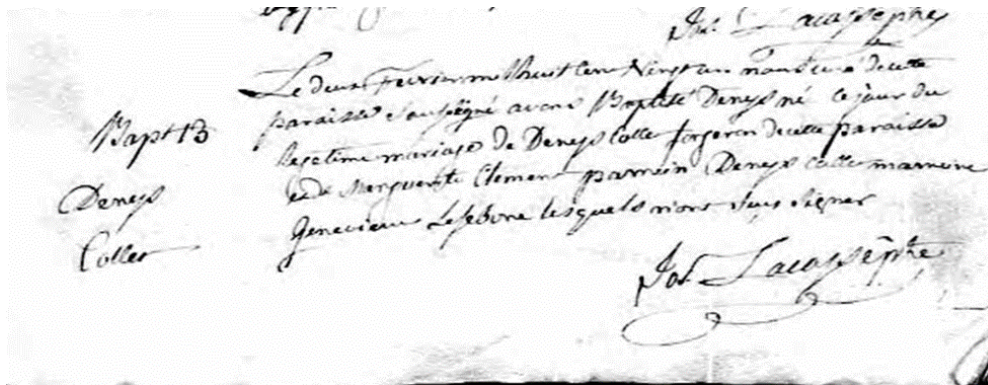 Jos. Lacassêphe
Le deux Fevrier mil huit cent Vingt un nous curé de cette
Bapt 13 paroisse soussigné avons Baptisé Denys né ce jour du
legitime mariage de Denys Colle forgeron de cette paroisse
Denys et de Marguerite Clement parrein Denys Colle marreine
Collet Genevieve Lefebvre lesquels n'ont sçus signer
Jos. Lacassêphe